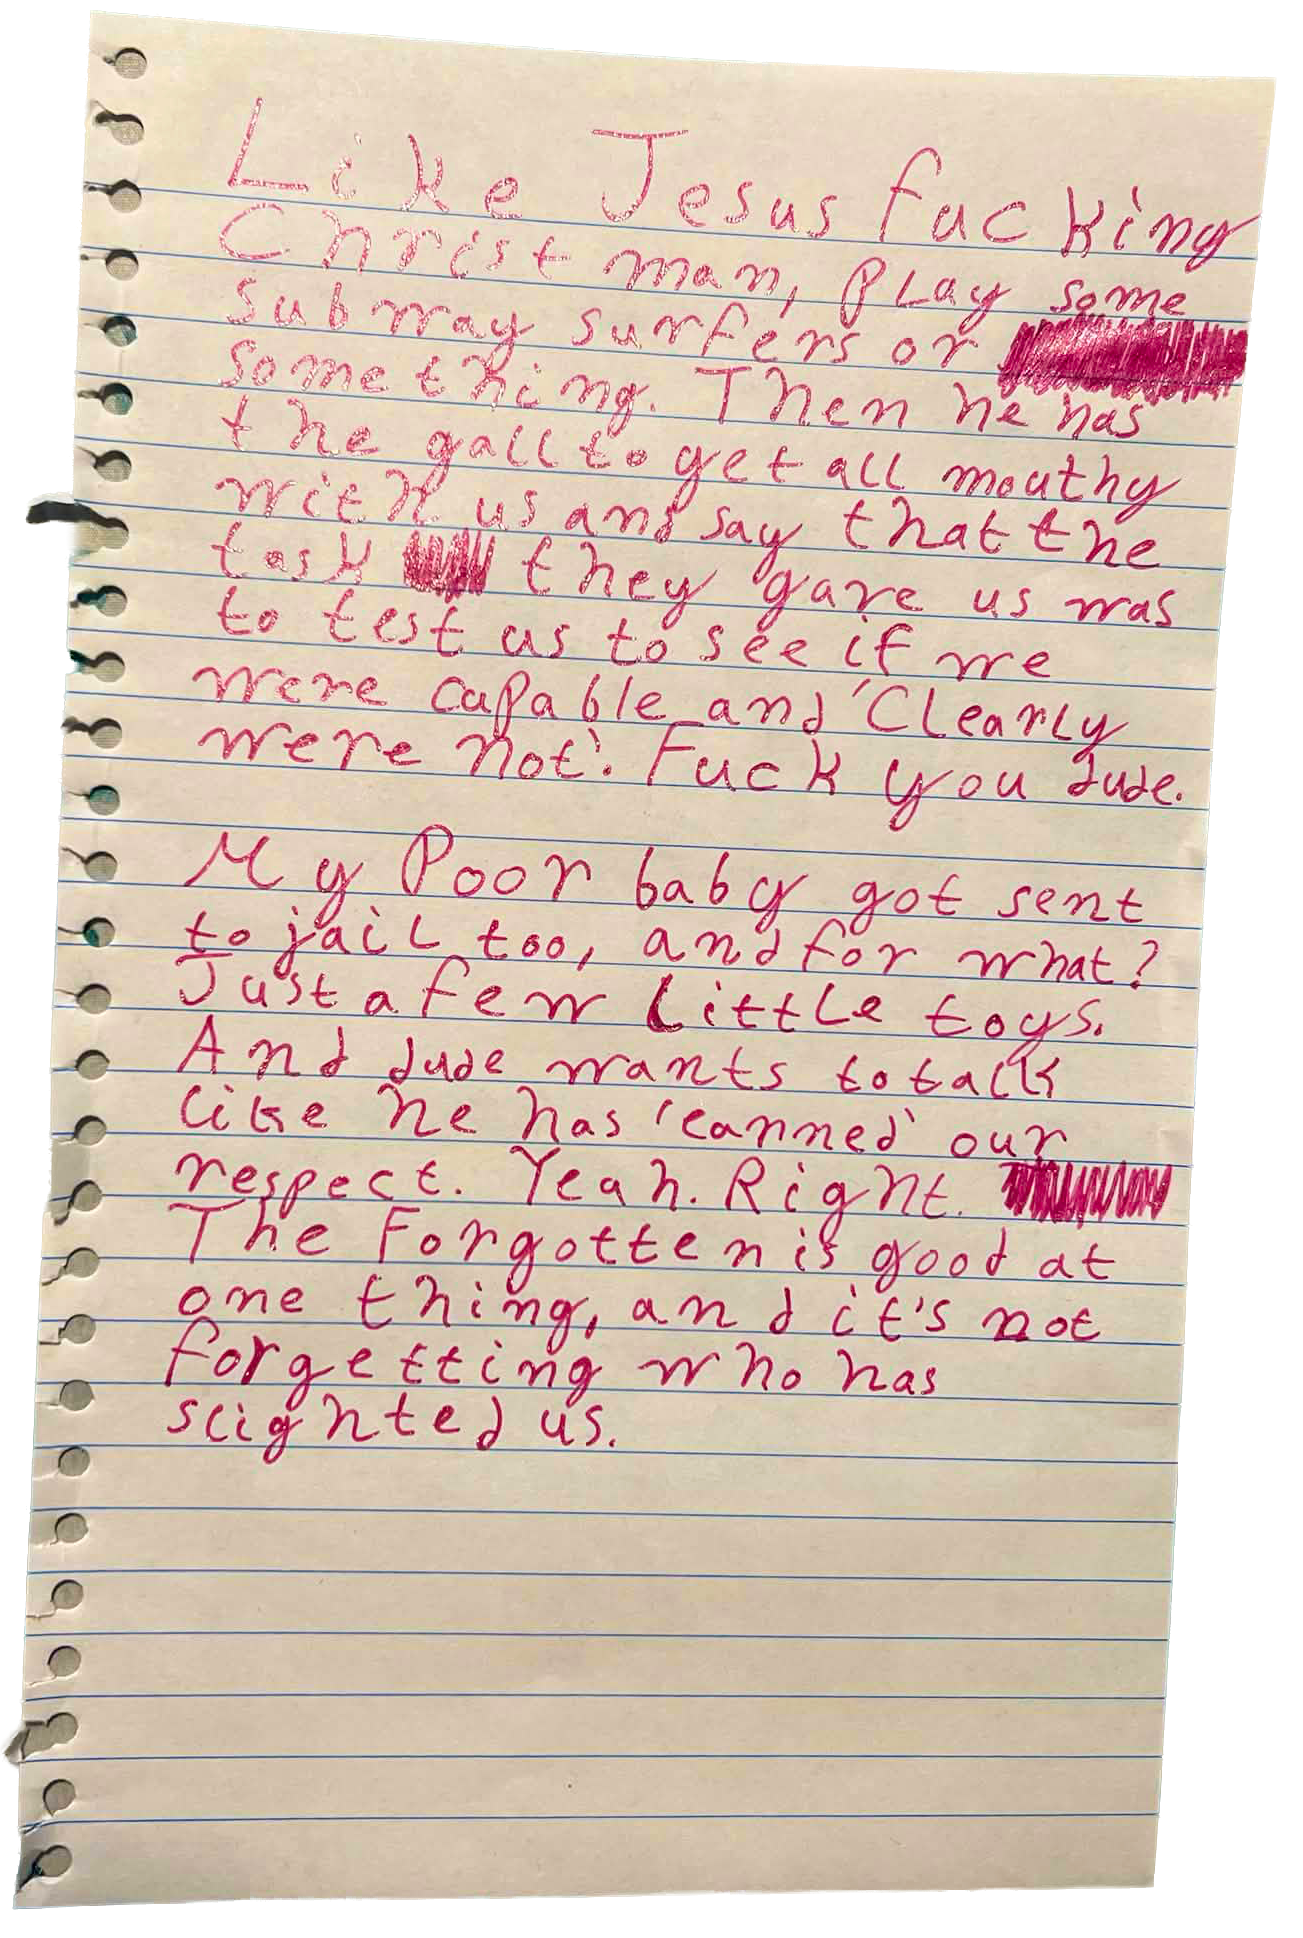 Like Jesus fucking
Christ man, Play some
subway surfers or
something. Then he has
the gall to get all mouthy
with us and say that the
task they gave us was
to test us to see if we
were capable and 'Clearly
were not'. Fuck you dude.
My Poor baby got sent
to jail too, and for what?
Just a few Little toys.
And dude wants to talk
like he has 'earned' our
respect. Yeah. Right.
The Forgotten is good at
one thing, and it's not
forgetting who has
slighted us.